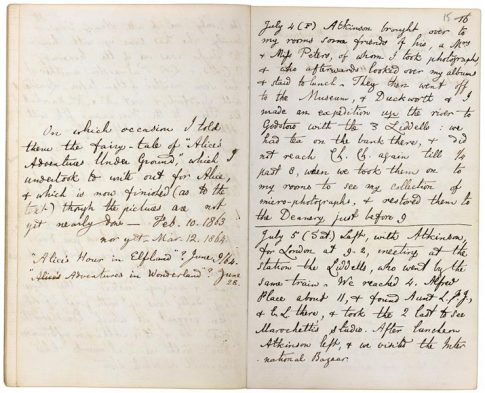 On which occasion I told
them the fairy-tale of "Alice's
Adventures Under Ground," which I
undertook to write out for Alice,
& which is now finished (as to the
text) though the pictures are not
yet nearly done — Feb. 10. 1863
nor yet — Mar. 12. 1864.
"Alice's Hour in Elfland"? June 9/64.
"Alice's Adventures in Wonderland"? June
28.
15 16
July 4 (F) Atkinson brought over to
my rooms some friends of his, a Mrs
& Miss Peters, of whom I took photographs,
& who afterwards looked over my albums
& staid to lunch. They then went off
to the Museum, & Duckworth & I
made an expedition up the river to
Godstow with the 3 Liddells: we
had tea on the bank there, & did
not reach Ch. Ch. again till ¼
past 8, when we took them on to
my rooms to see my collection of
micro-photographs, & restored them to
the Deanery, just before 9
July 5 (Sat) Left, with Atkinson,
for London at 9-2, meeting at the
station the Liddells, who went by the
same train. We reached 4. Alfred
Place about 11, & found Aunt L, P, J,
& L there, & took the 2 last to see
Marochetti's studio. After luncheon
Atkinson left, & we visited the Inter-
-national Bazaar.